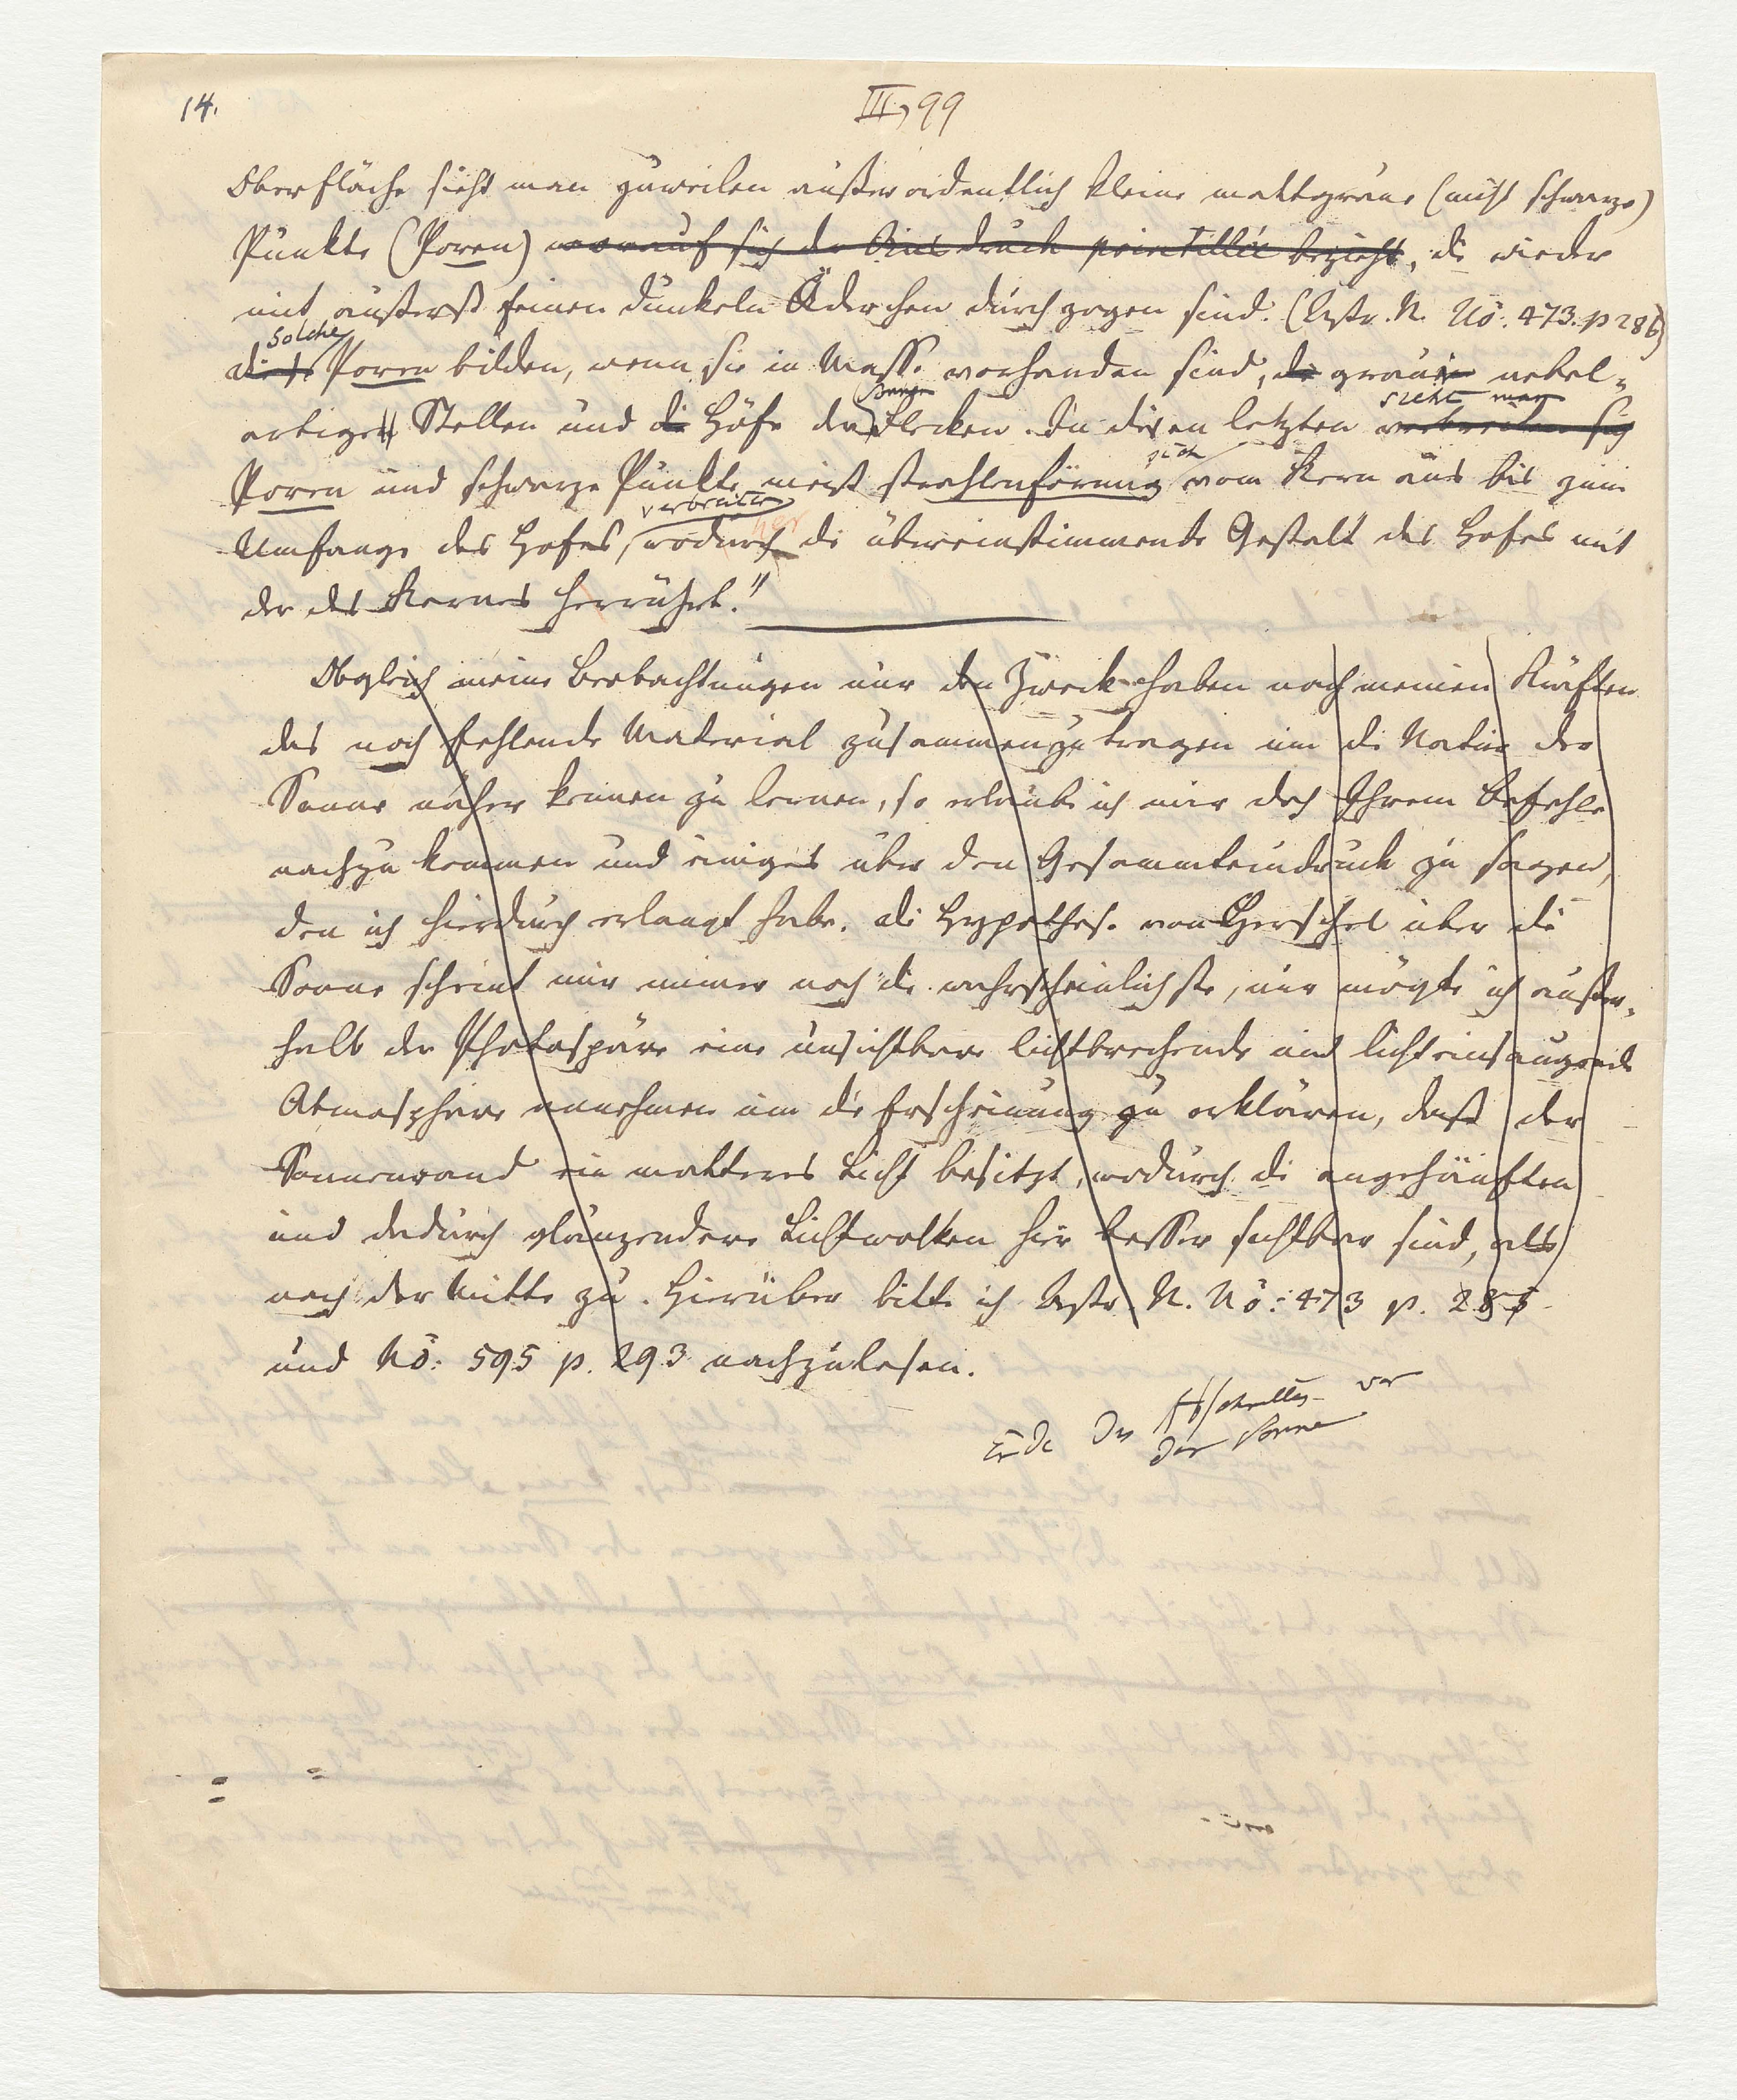 14.
III, 99
Oberfläche sieht man zuweilen außerordentlich kleine mattgraue (nicht schwarze)
Punkte (Poren) worauf sich der Ausdruck pointillée bezieht, die wieder
mit äußerst feinen dunkeln Äderchen durchzogen sind. (Astr. N. No. 473. p 286)
solche
Poren bilden, wenn sie in Masse vorhanden sind, die grauen nebel-
artigen Stellen und die Höfe der Flecken. In diesen letzten verbreiten sich
sieht man
Poren und schwarze Punkte meist strahlenförmig vom Kern aus bis zum
sich
verbreiten
Umfange des Hofes, wodurch die übereinstimmende Gestalt des Hofes mit
her
der des Kernes herrührt."
Obgleich meine Beobachtungen nur den Zweck haben nach meinen Kräften
das noch fehlende Material zusammenzutragen um die Natur der
Sonne näher kennen zu lernen, so erlaube ich mir doch Ihrem Befehle
nachzukommen und einiges über den Gesammteindruck zu sagen,
den ich hierdurch erlangt habe. Die Hypothese von Herschel über die
Sonne scheint mir immer noch die wahrscheinlichste, nur mögte ich außer-
halb der Photospäre eine unsichtbare lichtbrechende und lichteinsaugende
Atmosphäre annehmen um die Erscheinung zu erklären, daß der
Sonnenrand ein matteres Licht besitzt, wodurch die angehäuften
und dadurch glänzendere Lichtwolken hier besser sichtbar sind, als
nach der Mitte zu. Hierüber bitte ich Astr. N. No: 473 p. 287
und No: 595 p. 293 nachzulesen.
Ende des Abschnittes von
der Sonne